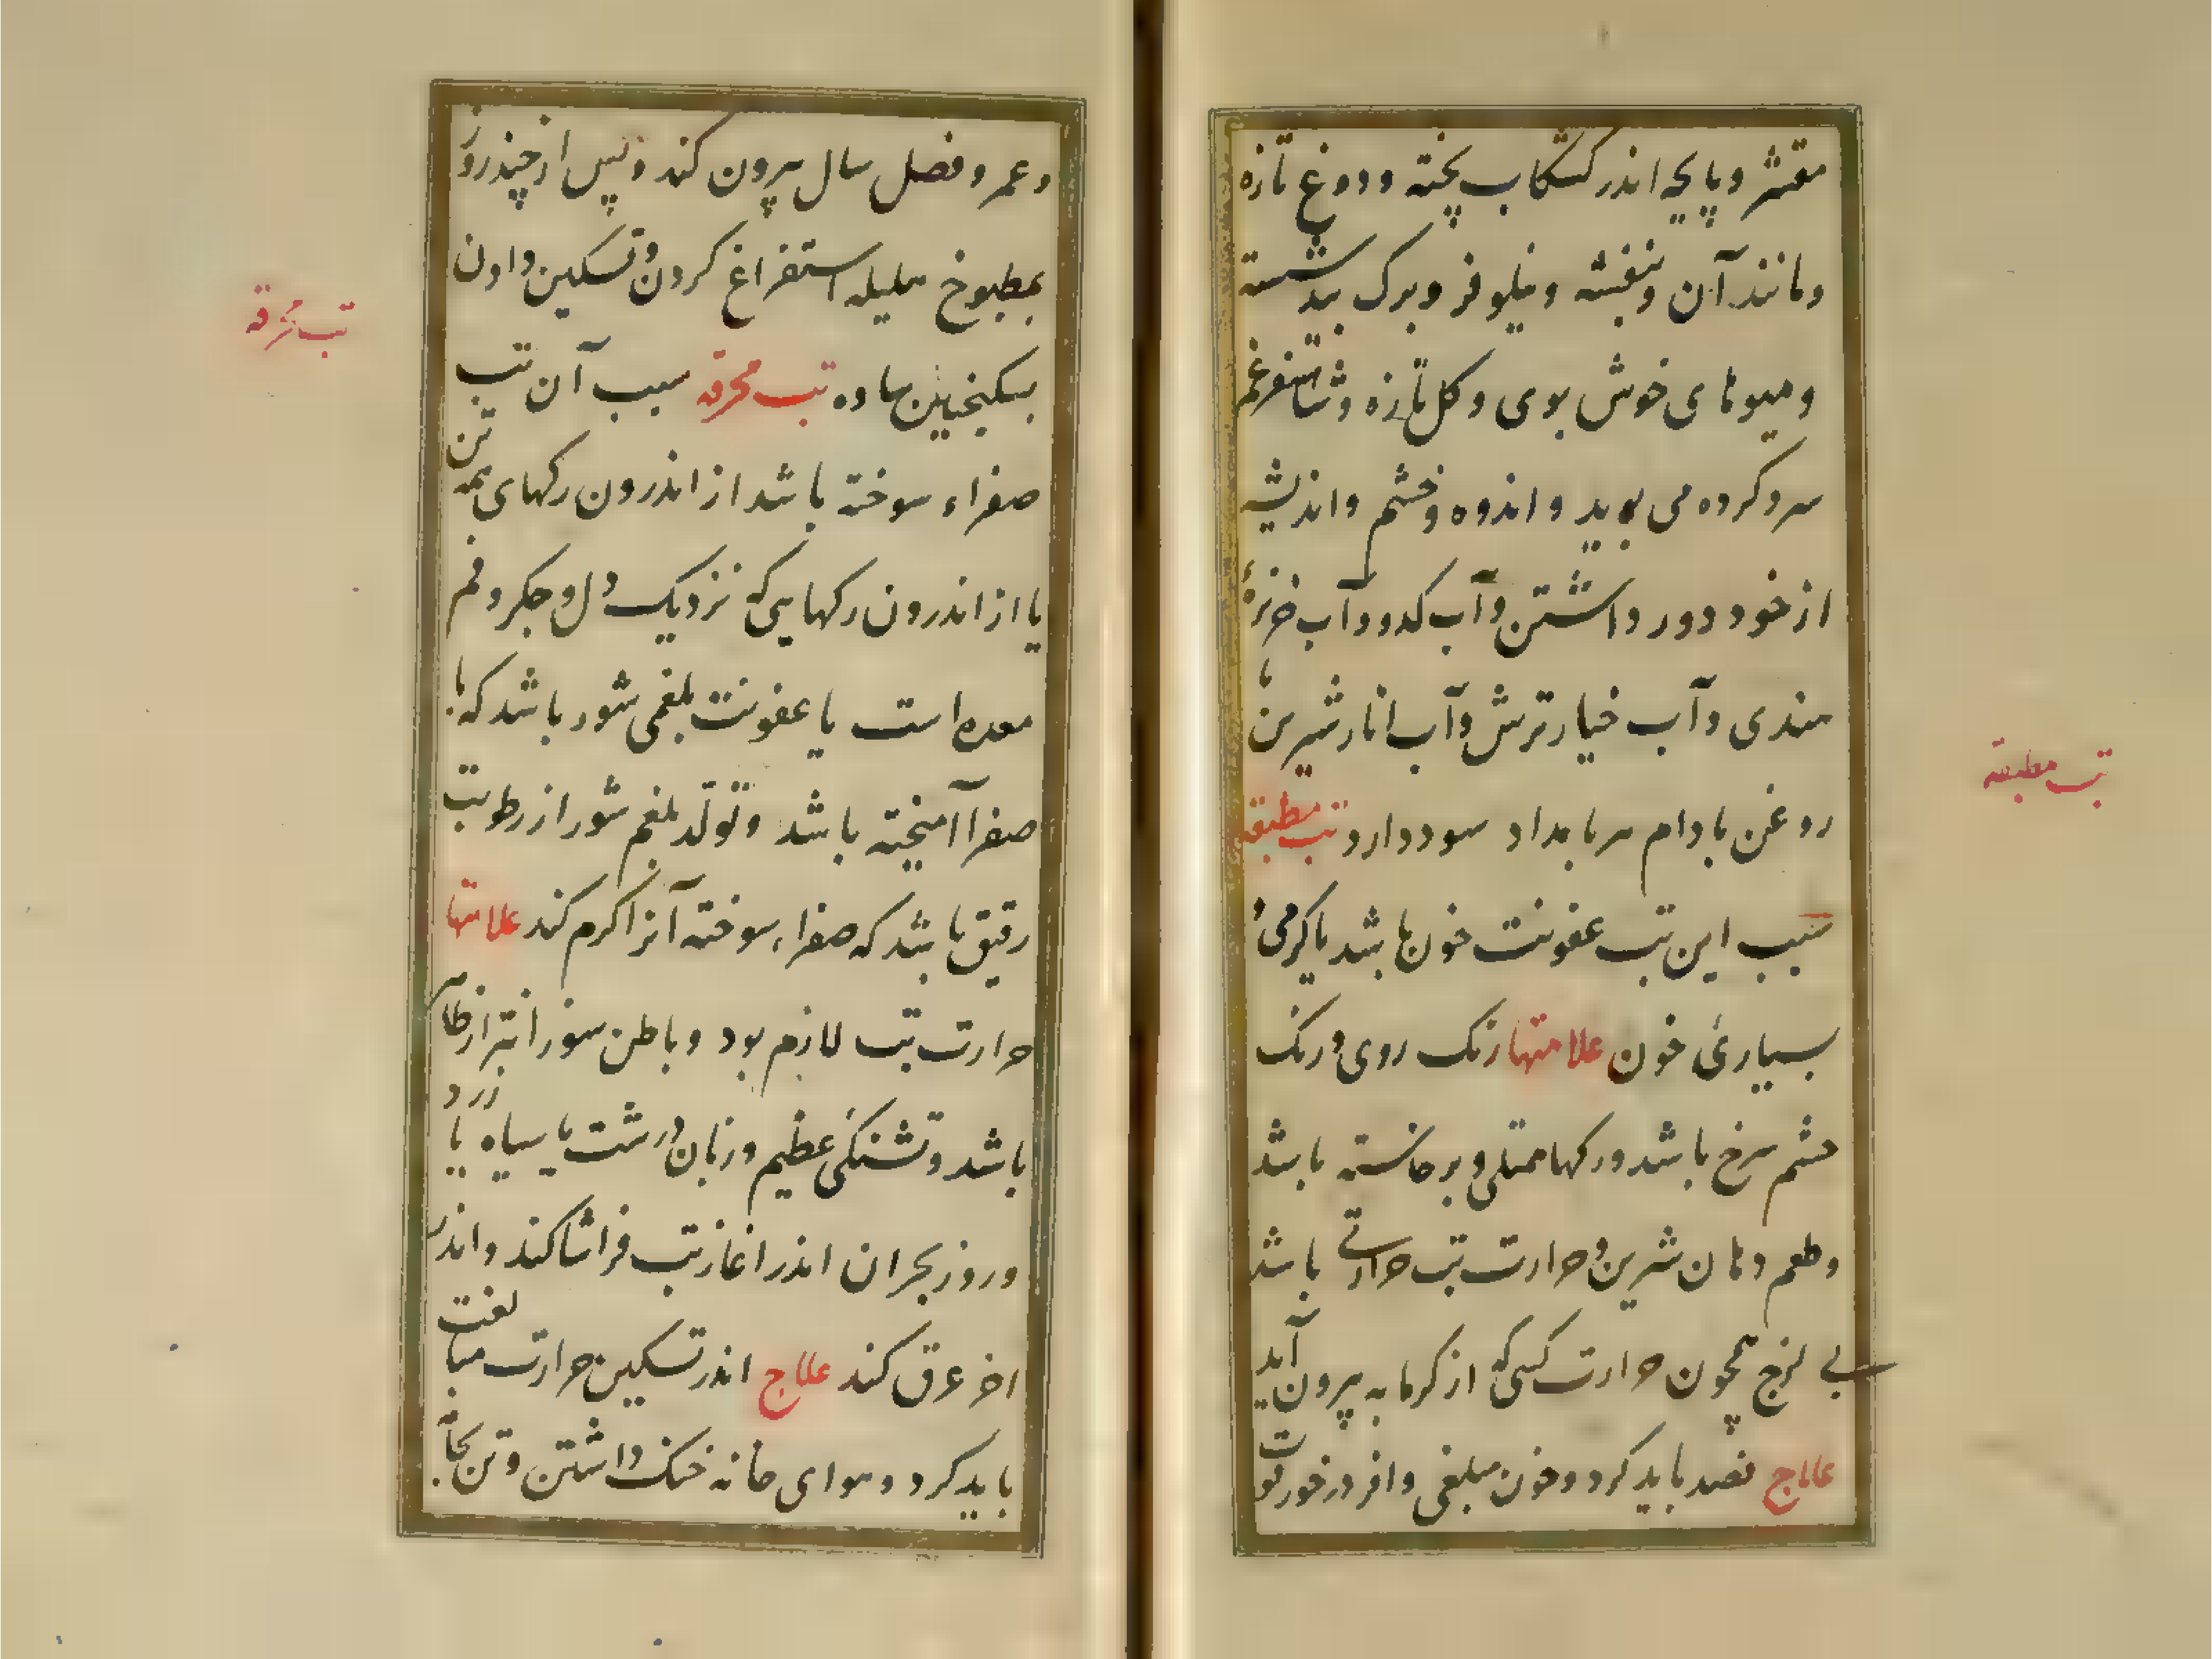 مقشر و پایچه اندر کشکاب پخته و دوغ تازه
و مانند آن و بنفشه و نیلوفر و برک بید شسته
و میوهای خوش بوی و کل تازه و شاهسفرغم
سرد کرده می بوید و اندوه و خشم و اندیشه
از خود دور داشتن و آب کدو و آب خربزهٔ
هندی و آب خیار ترش و آب انار شیرین با
روغن بادام هر بامداد سود دارد تب مطبقه
تب مطبقه
سبب این تب عفونت خون باشد یا کرمی و
بسیاریٔ خون علامتها رنک روی و رنک
چشم سرخ باشد و رکها ممتلی و برخاسته باشد
و طعم دهان شیرین و حرارت تب حرارتی باشد
بی لزج همچون حرارت کسی که از کرمابه بیرون آید
علاج فصد باید کرد و خون مبلغی وافر در خور قوت
و عمر و فصل سال بیرون کند و پس از چند روز
بمطبوخ هلیله استفراغ کردن و تسکین دادن
بسکنجبین ساده تب محرقه سبب آن تب
تب محرقه
صفراء سوخته باشد از اندرون رکهای همه تن
یا از اندرون رکهایی که نزدیک دل و جکر و فم
معده است یا عفونت بلغمی شور باشد که با
صفرا آمیخته باشد و تولّد بلغم شور از رطوبت
رقیق باشد که صفراء سوخته آنرا کرم کند علامتها
حرارت تب لازم بود و باطن سوزانتر از ظاهر
باشد و تشنکی عظیم و زبان درشت یا سیاه یا زرد
و روز بحران اندر اغاز تب فراشا کند و اندر
اخر عرق کند علاج اندر تسکین حرارت مبالغت
باید کرد و هوای خانه خنک داشتن و تن بجامه